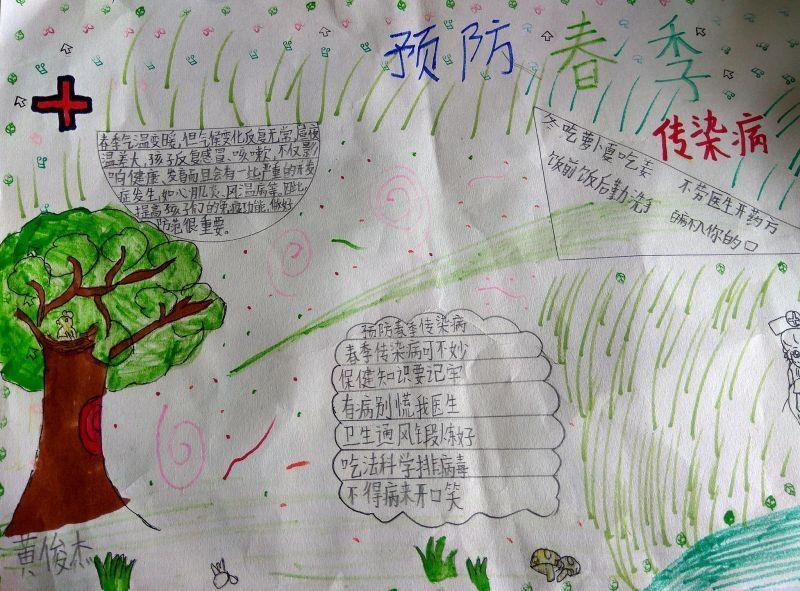 预防春季
传染病
春季气温变暖,但气候变化反复无常,昼夜
温差大,孩子反复感冒、咳嗽,不仅影
响健康、发育而且会有一些严重的并发
症发生,如心肌炎、风湿病等,因此,
提高孩子们的免疫功能,做好
防范很重要。
冬吃萝卜夏吃姜
不劳医生开药方
饭前饭后勤洗手
病入你的口
预防春季传染病
春季传染病可不妙
保健知识要记牢
有病别慌找医生
卫生通风锻炼好
吃法科学排病毒
不得病来开口笑
黄俊杰